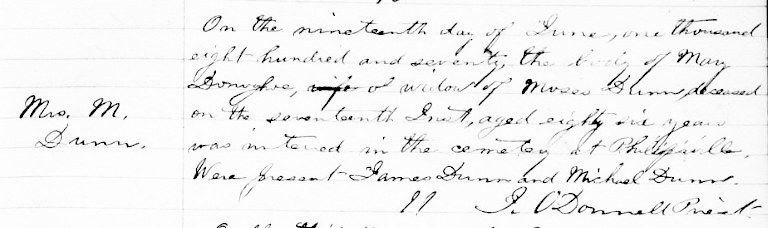 On the nineteenth day of June, one thousand
eight hundred and seventy, the body of May
Donoghoe, wife of widow of Moses Dunn, deceased
Mrs. M.
on the seventeenth Inst, aged eighty six years
Dunn.
was intered in the cemetey at Philipsville.
Were present James Dunn and Michael Dunn.
J. O'Donnell Priest